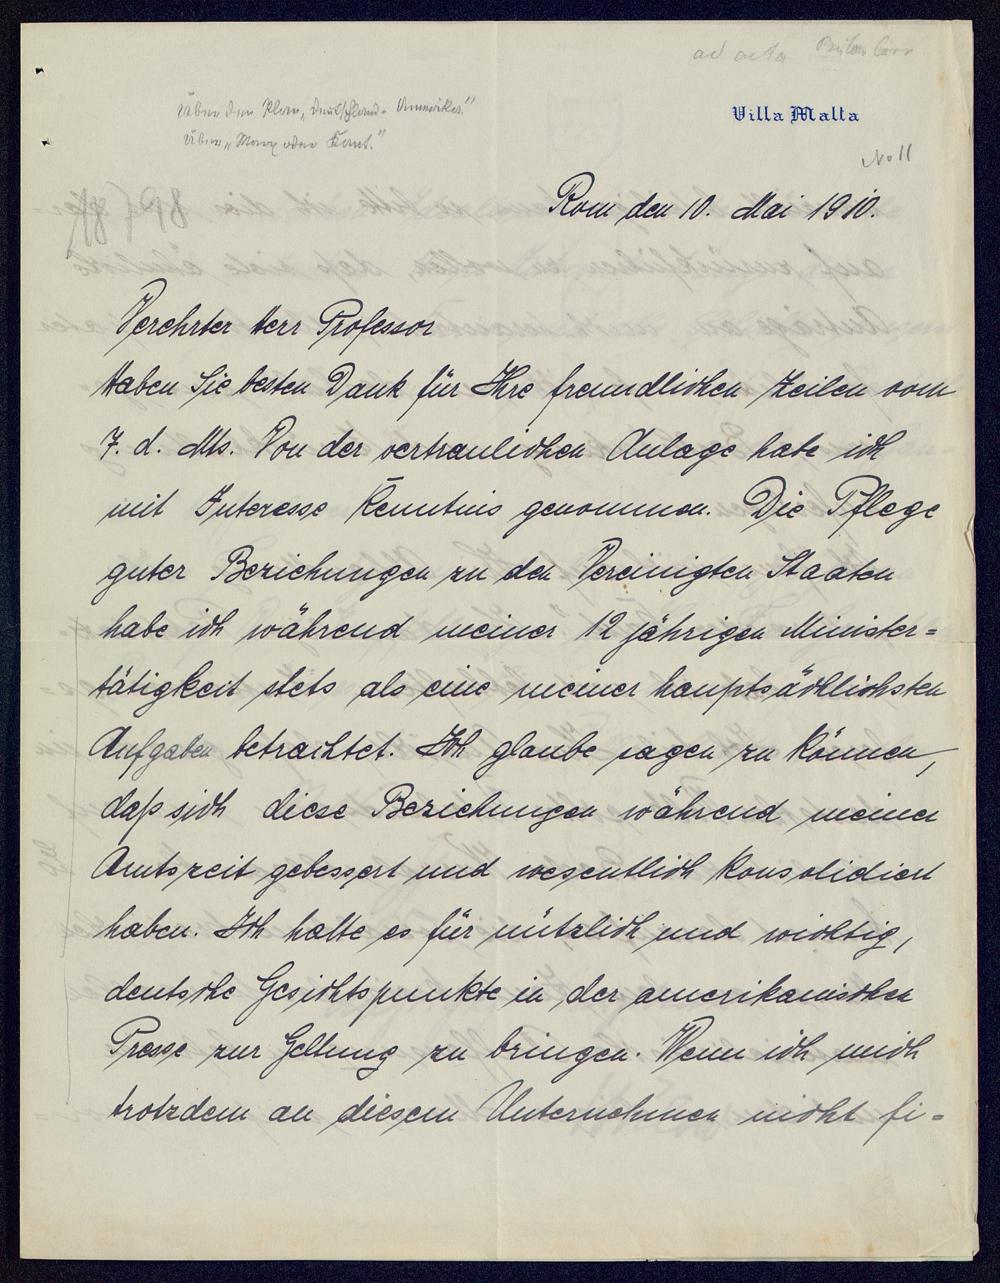 ad acta
Über den Plan „Deutschland-Amerika."
Über „Marx oder Kant."
Villa Malta
No 11
Rom den 10. Mai 1910.
Verehrter Herr Professor
Haben Sie besten Dank für Ihre freundlichen Zeilen vom
7. d. Mts. Von der vertraulichen Anlage habe ich
mit Interesse Kenntnis genommen. Die Pflege
guter Beziehungen zu den Vereinigten Staaten
habe ich während meiner 12 jährigen Minister=
tätigkeit stets als eine meiner hauptsächlichsten
Aufgaben betrachtet. Ich glaube sagen zu können,
daß sich diese Beziehungen während meiner
Amtszeit gebessert und wesentlich konsolidiert
haben. Ich halte es für nützlich und wichtig,
deutsche Gesichtspunkte in der amerikanischen
Presse zur Geltung zu bringen. Wenn ich mich
trotzdem an diesem Unternehmen nicht fi=